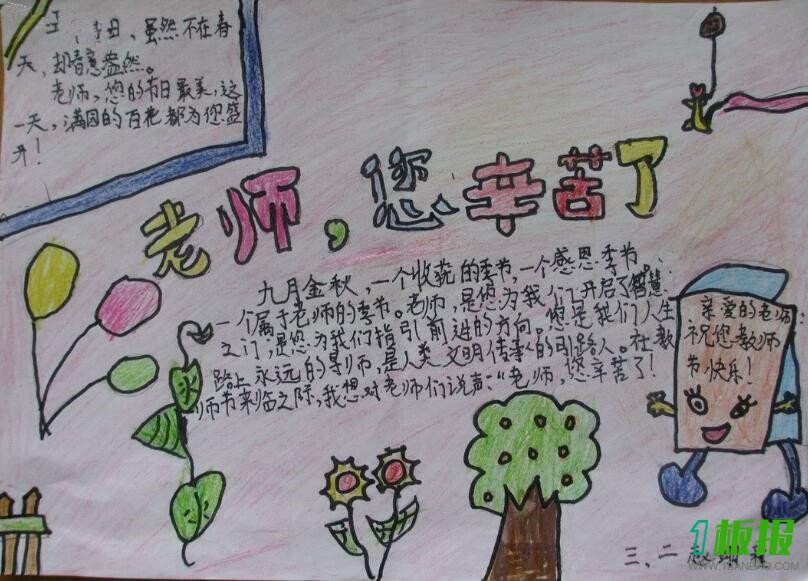 日，虽然不在春
天，却春意盎然。
老师，您的节日最美，这
一天，满园的百花都为您盛
开！
老师，您辛苦了
九月金秋，一个收获的季节，一个感恩季节。
一个属于老师的季节。老师，是您为我们开启了智慧
之门，是您为我们指引前进的方向。您是我们人生
路上永远的导师，是人类文明传事的引路人。在教
师节来临之际，我想对老师们说声：“老师，您辛苦了！
亲爱的老师：
祝您教师
节快乐！
三、二
1板报
WWW.1BANBAO.COM